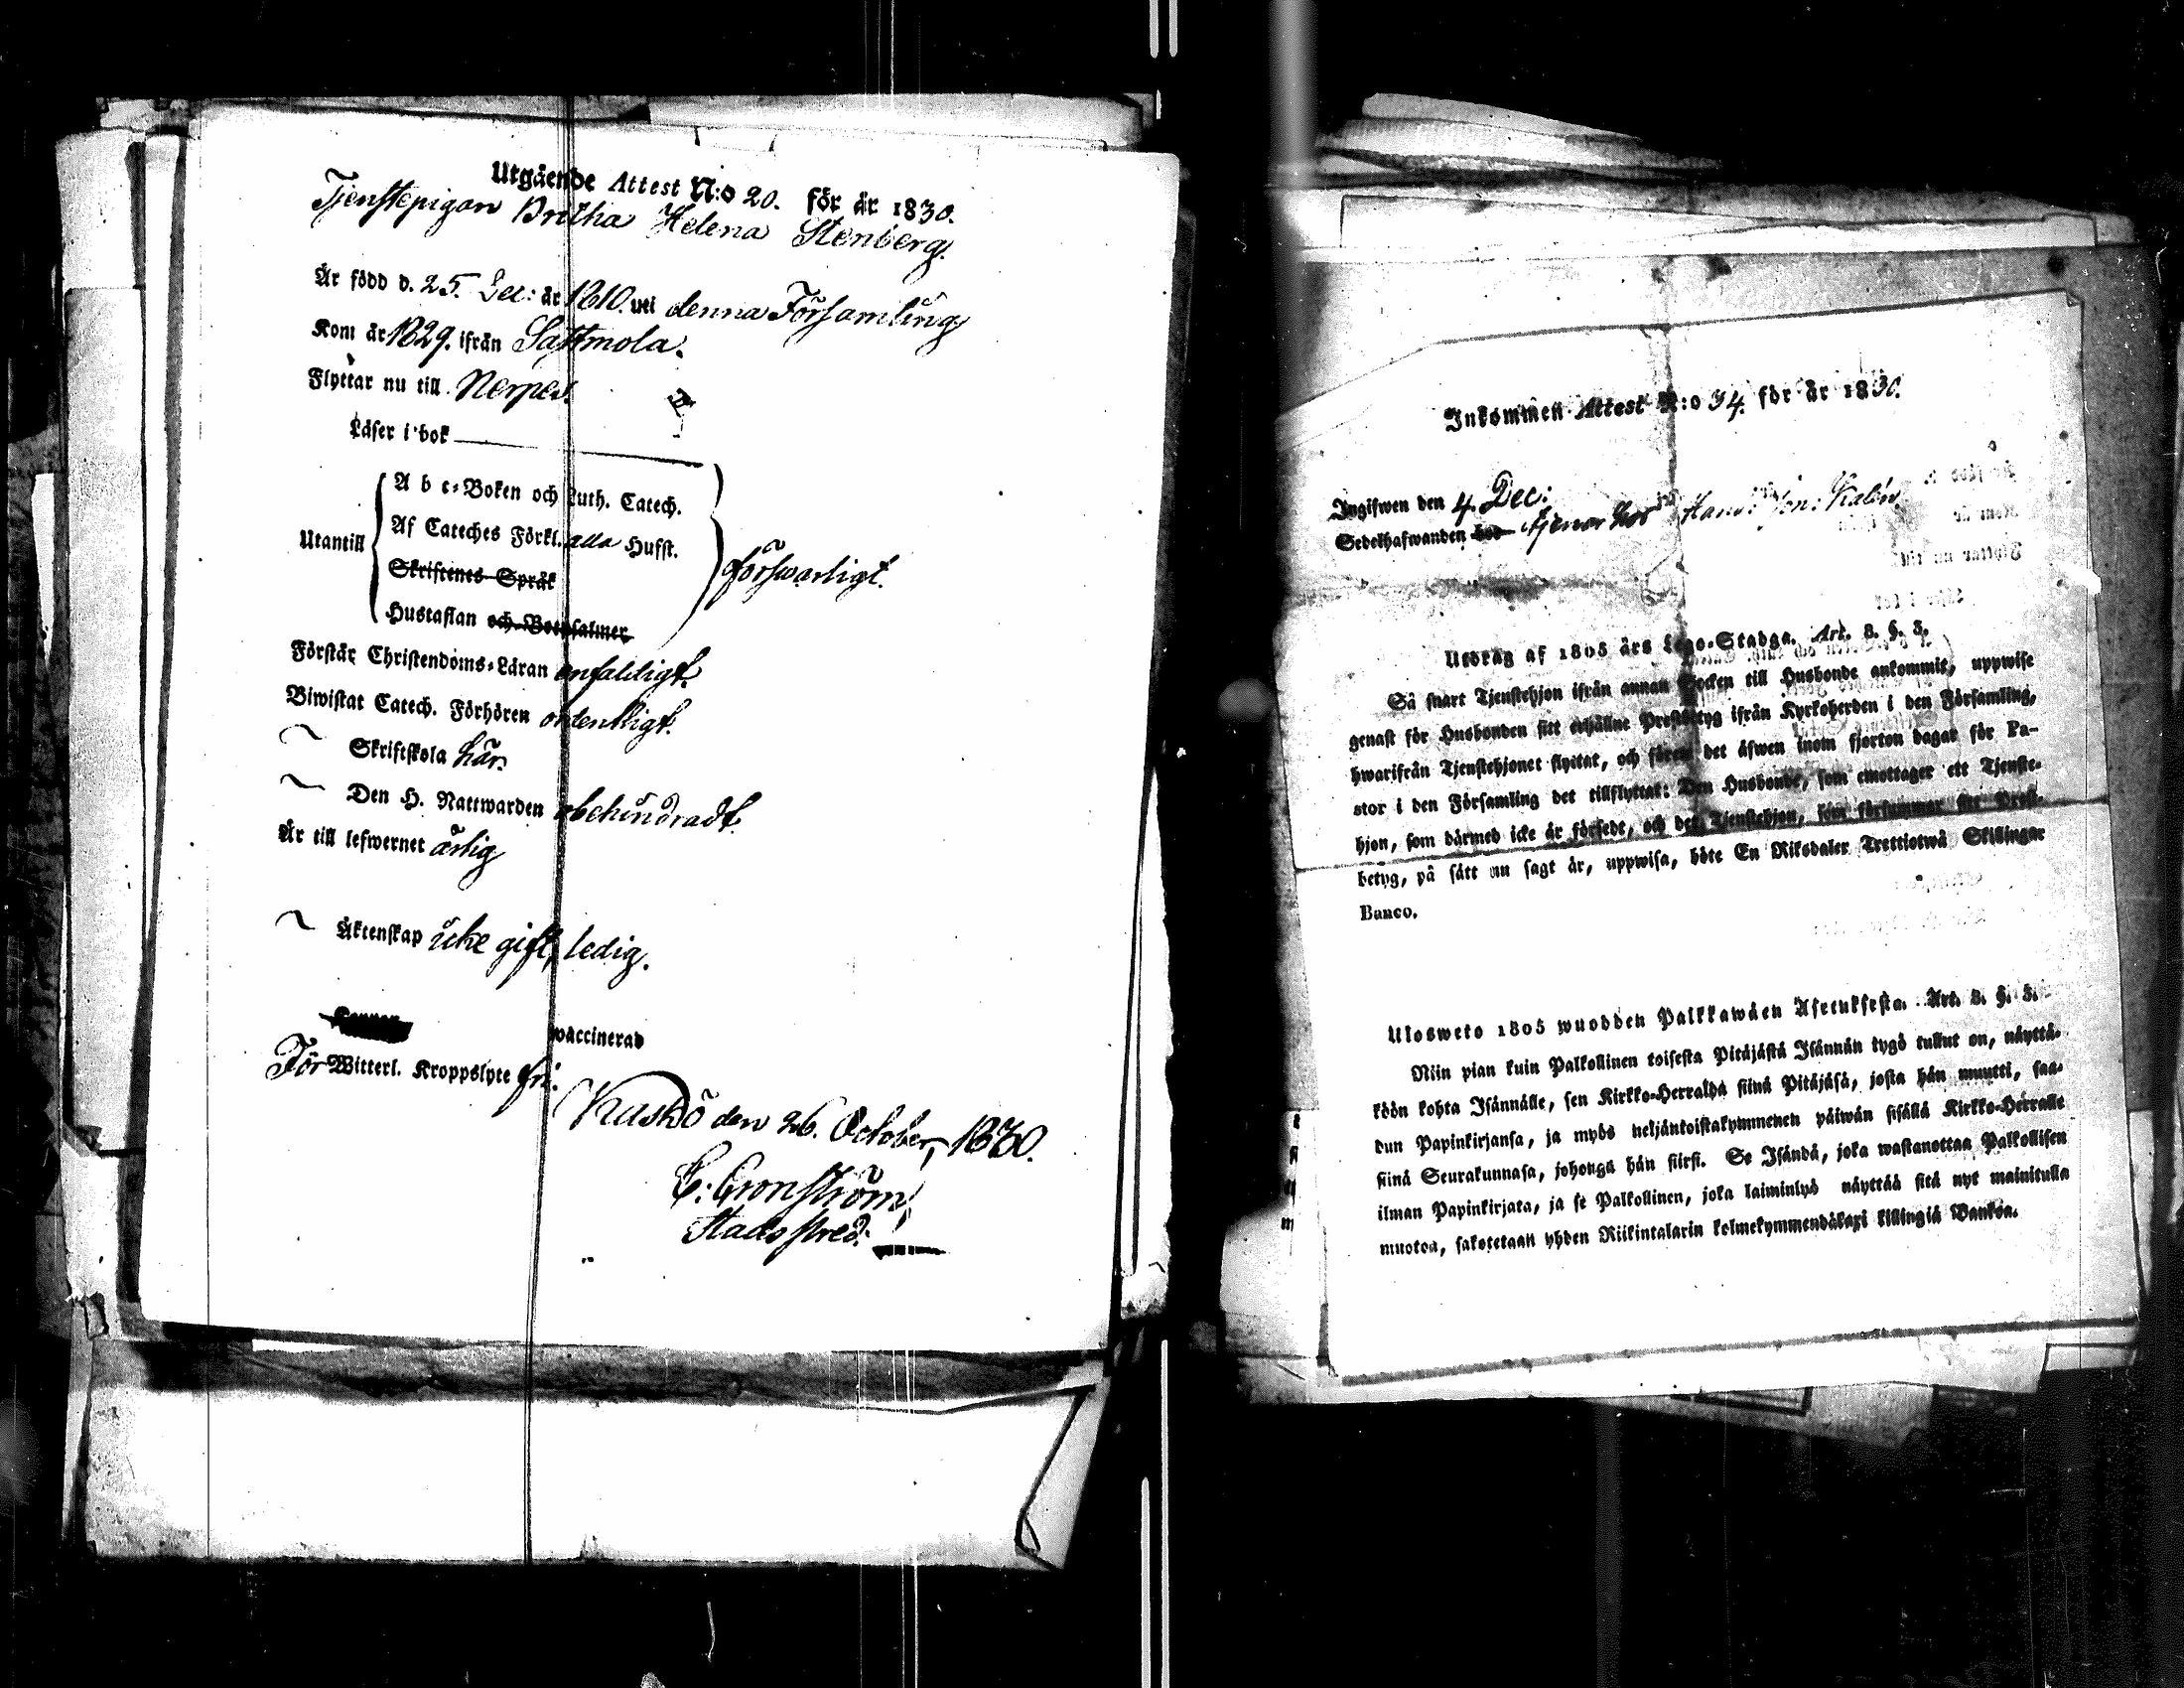 Utgående Attest N:o 20. för år 1830.
Tjenstepigan Britha Helena Stenberg.
Är född d. 25. Dec: år 1810. uti denna Församling
Kom år 1829. ifrån Sastmola.
Flyttar nu till Nerpes.
Läser i bok
A b c-Boken och Luth. Catech.
Utantill
Af Cateches Förkl. alla Husst.
Skriftenes Språk
Hustaflan och Botpsalmer
försvarligt.
Förstår Christendoms-Läran enfaldigt.
Biwistat Catech. Förhören ordentligt.
Skriftskola här.
Den H. Nattwarden obehindradt.
Är till lefwernet ärlig
Äktenskap icke gift, ledig.
waccinerad
För Witterl. Kroppslyte fri.
Kaskö den 26. October, 1830.
C: Cronström
Stadspred:
Inkommen Attest N:o 34. för år 1830.
Ingifwen den 4. Dec:
Sedelhafwanden hos tjenar hos Hans Jon:
Utdrag af 1805 års Lego-Stadga. Art. 3. §. 5.
Så snart Tjenstehjon ifrån annan Socken till Husbonde ankommit, uppwise
genast för Husbonden sitt erhållne Prestbetyg ifrån Kyrkoherden i den Församling,
hwarifrån Tjenstehjonet flyttat, och förete det äfwen inom fjorton dagar för Pa-
stor i den Församling det tillflyttat: Den Husbonde, som emottager ett Tjenste-
hjon, som därmed icke är försedt, och det Tjenstehjon, som försummar sitt Prest-
betyg, på sätt nu sagt är, uppwisa, böte En Riksdaler Trettiotwå Skillingar
Banco.
Ulosweto 1805 wuodden Palkkawäen Asetuksesta. Art. 3. §. 5.
Niin pian kuin Palkollinen toisesta Pitäjästä Isännän tygö tullut on, näyttä-
köön kohta Isännälle, sen Kirkko-Herralda siinä Pitäjäsä, josta hän muutti, saa-
dun Papinkirjansa, ja myös neljäntoistakymmenen päiwän sisällä Kirkko-Herralle
siinä Seurakunnasa, johonga hän siirsi. Se Isändä, joka wastanottaa Palkollisen
ilman Papinkirjata, ja se Palkollinen, joka laiminlyö näyttää sitä nyt mainitulla
muotoa, sakotetaan yhden Riikintalarin kolmekymmendäkaxi killingiä Bankoa.